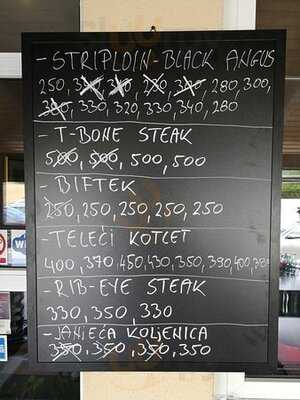 - STRIPLOIN-BLACK ANGUS
250, 280, 300,
330, 320, 330, 340, 280
- T-BONE STEAK
500, 500, 500, 500
- BIFTEK
250, 250, 250, 250, 250
- TELEĆI KOTLET
400, 370, 450, 430, 350, 390, 400, 380
- RIB-EYE STEAK
330, 350, 330
- JANJEĆA KOLJENICA
350, 350, 350, 350